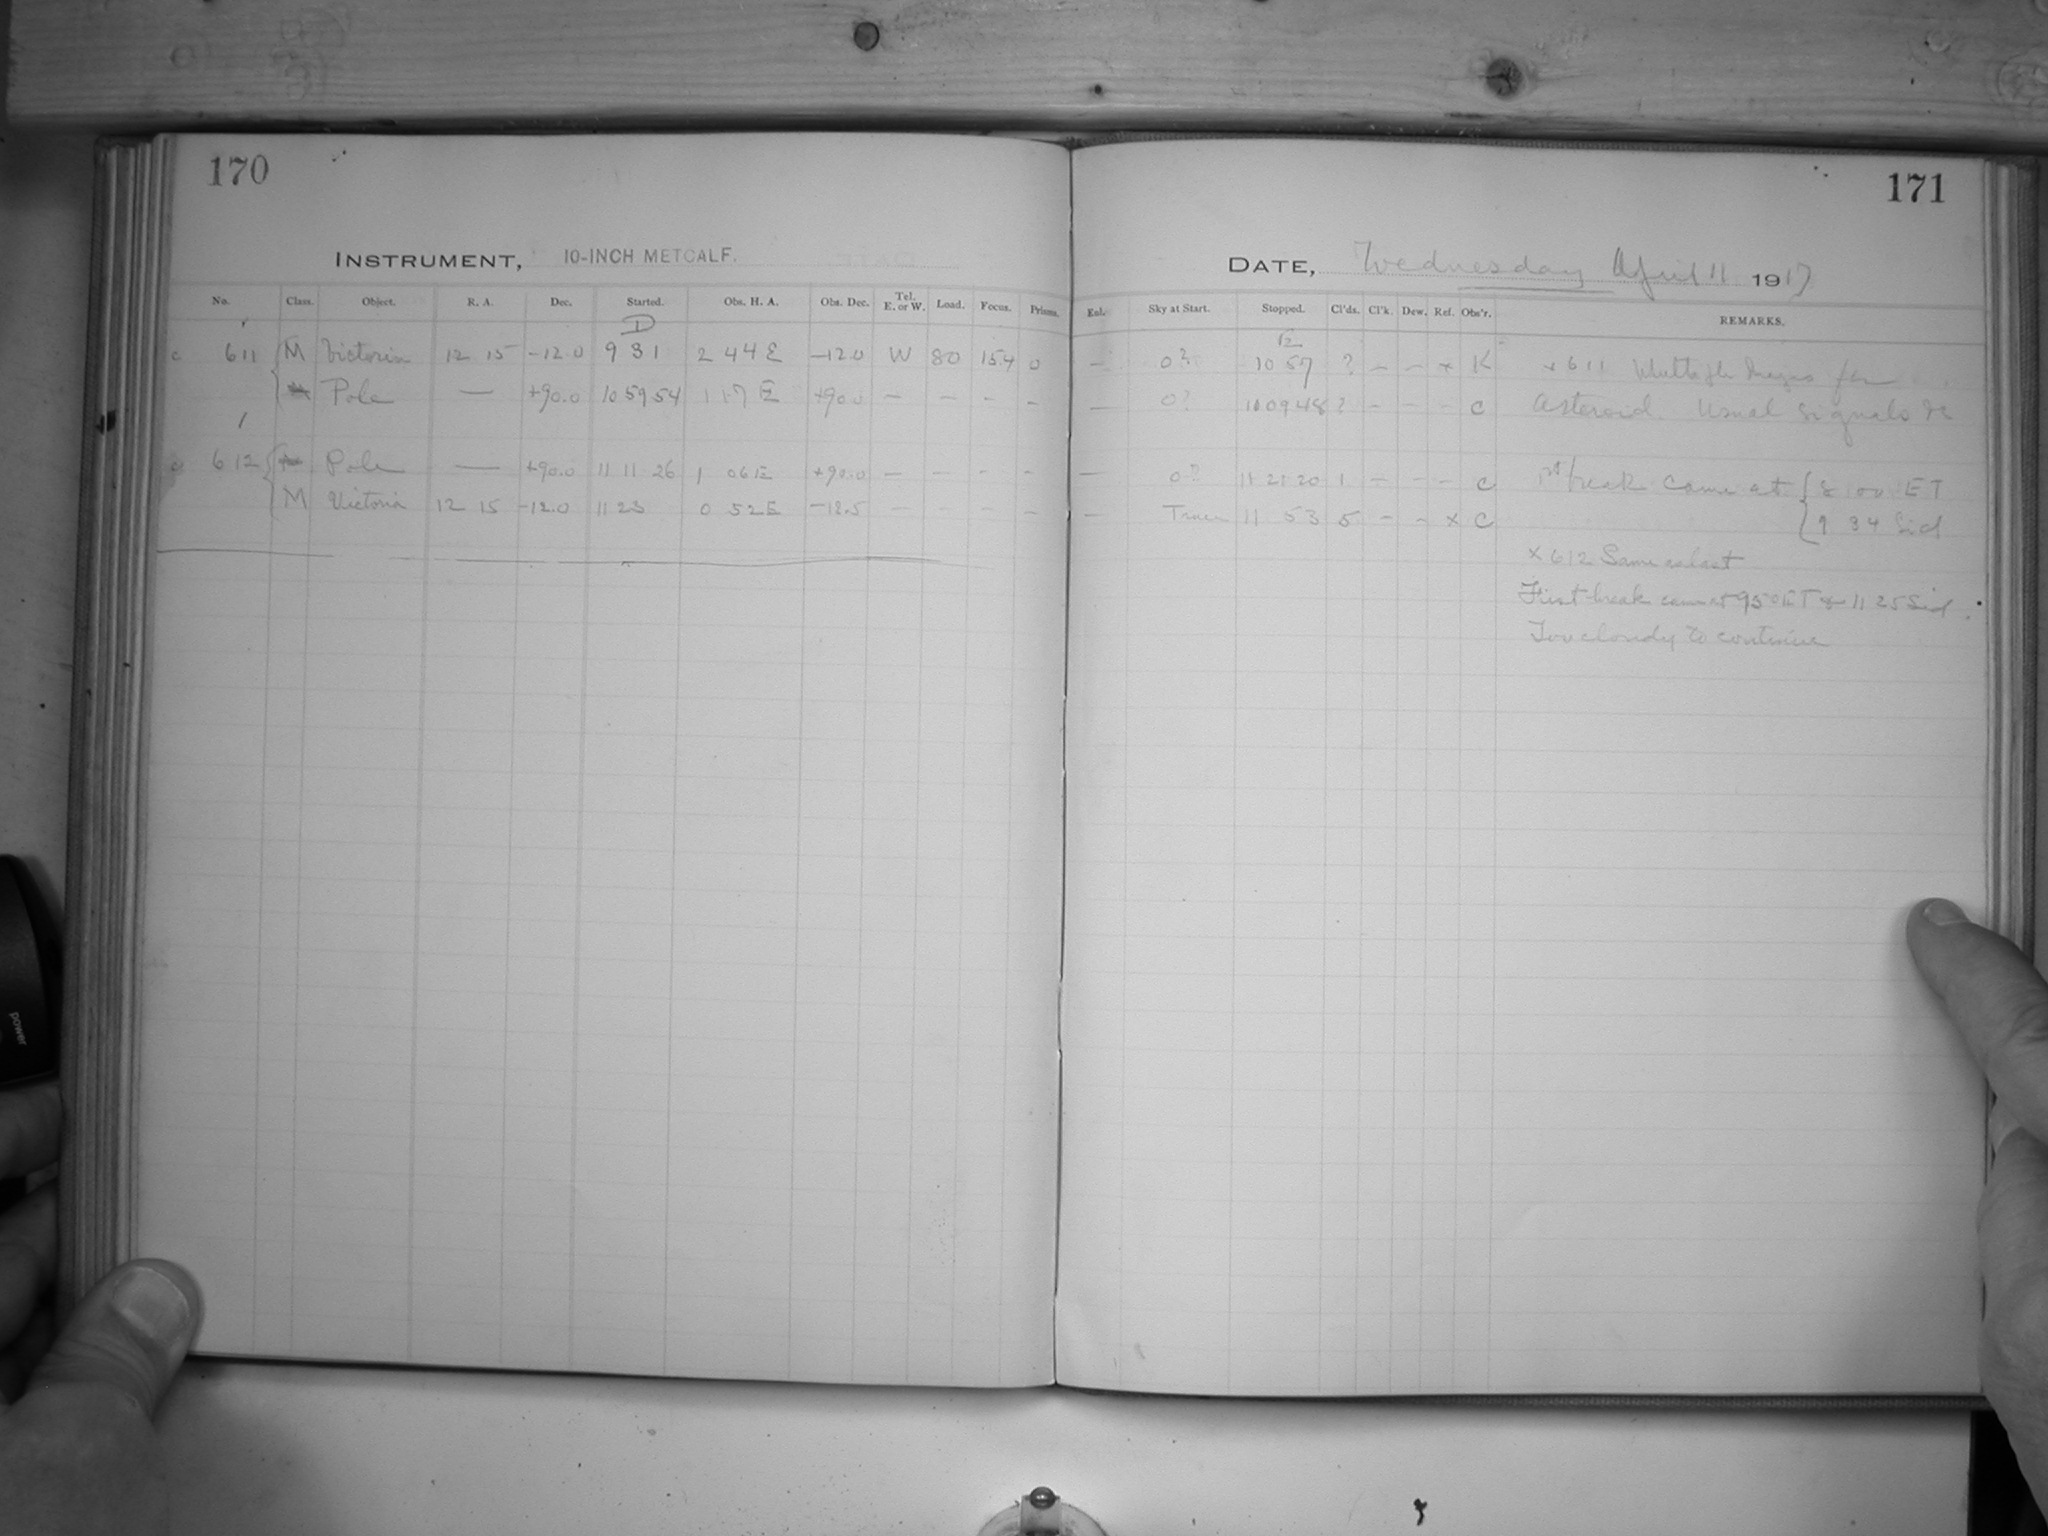 170
171
INSTRUMENT, 10-INCH METCALF.
DATE, Wednesday April 11 1917
No. Class. Object. R. A. Dec. Started. Obs. H. A. Obs. Dec. Tel. E. or W. Load. Focus. Prisms. Enl. Sky at Start. Stopped. Cl'ds. Cl'k. Dew. Ref. Obs'r. REMARKS.
D E
c 611 M Victoria 12 15 -12.0 9 31 2 44 E -12.0 W 80 15.4 0 - 0? 10 57 ? - - x K x 611 Multiple Images for
Pole — +90.0 10 59 54 1 17 E +90.0 - - - - - 0? 11 09 48 ? - - - C Asteroid. Usual signals
612 Pole — +90.0 11 11 26 1 06 E +90.0 - - - - - 0? 11 21 20 1 - - - C 1st break came at { 8 00 ET
M Victoria 12 15 -12.0 11 23 0 52 E -12.5 - - - - - 11 53 5 - - x C { 9 34 Sid
x 612 Same as last
First break came at 9 50 ET & 11 25 Sid.
Too cloudy to continue
power